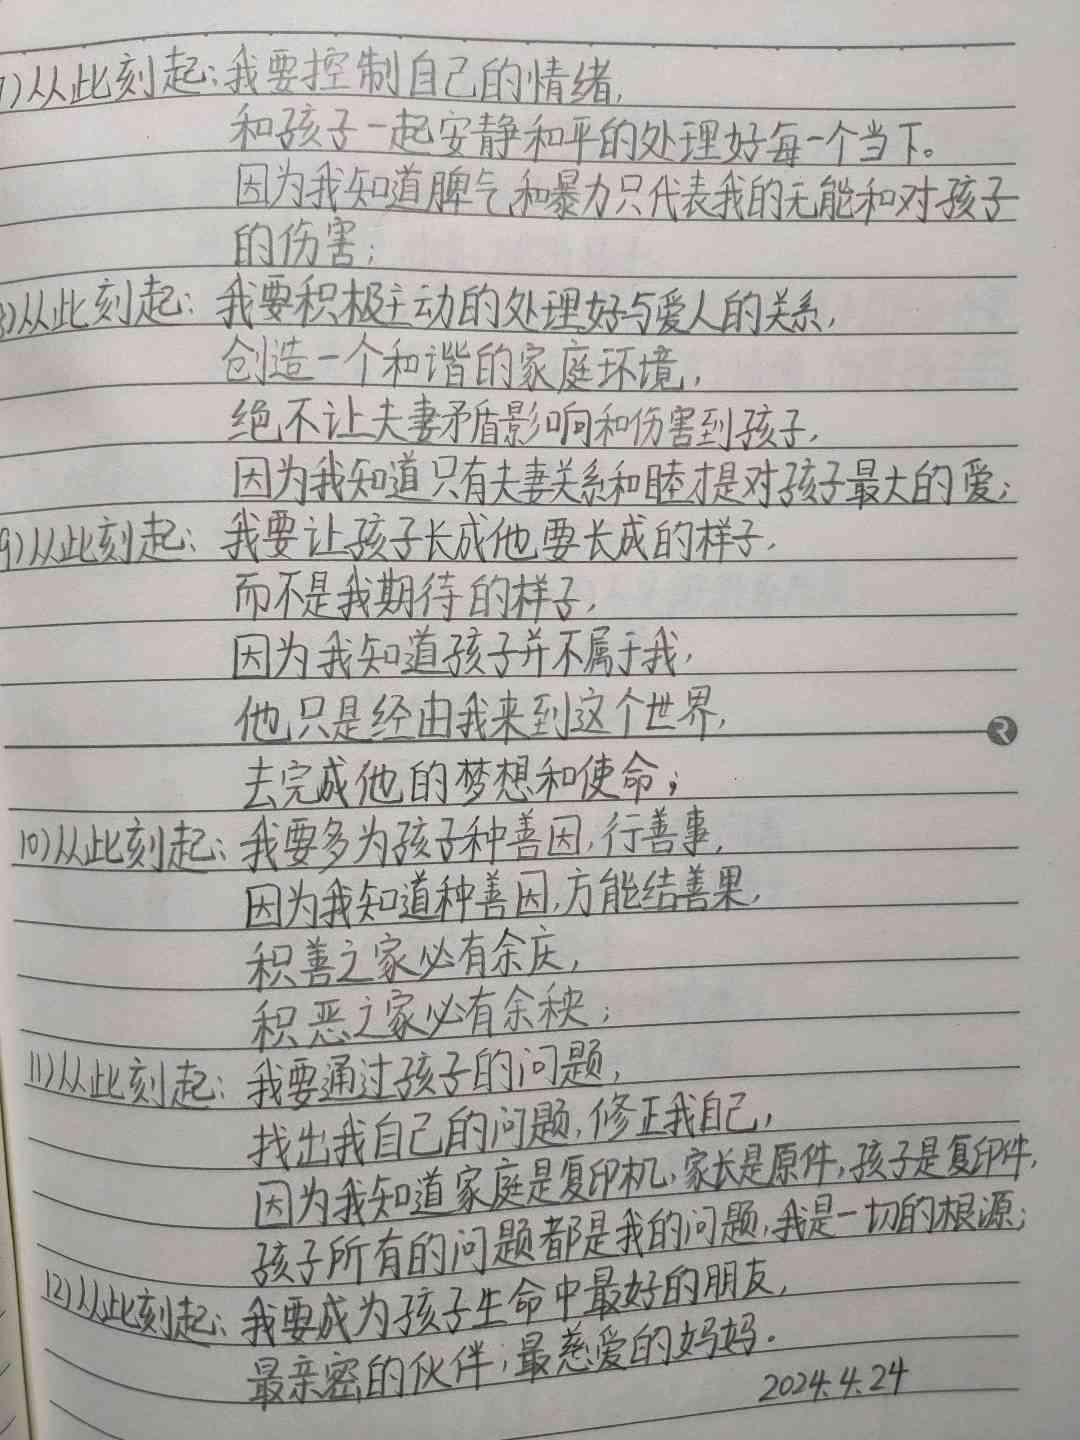 7)从此刻起:我要控制自己的情绪,
和孩子一起安静和平的处理好每一个当下。
因为我知道脾气和暴力只代表我的无能和对孩子
的伤害;
8)从此刻起:我要积极主动的处理好与爱人的关系,
创造一个和谐的家庭环境,
绝不让夫妻矛盾影响和伤害到孩子,
因为我知道只有夫妻关系和睦才是对孩子最大的爱;
9)从此刻起:我要让孩子长成他要长成的样子,
而不是我期待的样子,
因为我知道孩子并不属于我,
他只是经由我来到这个世界,
去完成他的梦想和使命;
10)从此刻起:我要多为孩子种善因,行善事,
因为我知道种善因,方能结善果,
积善之家必有余庆,
积恶之家必有余秧;
11)从此刻起:我要通过孩子的问题,
找出我自己的问题,修正我自己,
因为我知道家庭是复印机,家长是原件,孩子是复印件,
孩子所有的问题都是我的问题,我是一切的根源;
12)从此刻起:我要成为孩子生命中最好的朋友,
最亲密的伙伴,最慈爱的妈妈.
2024.4.24